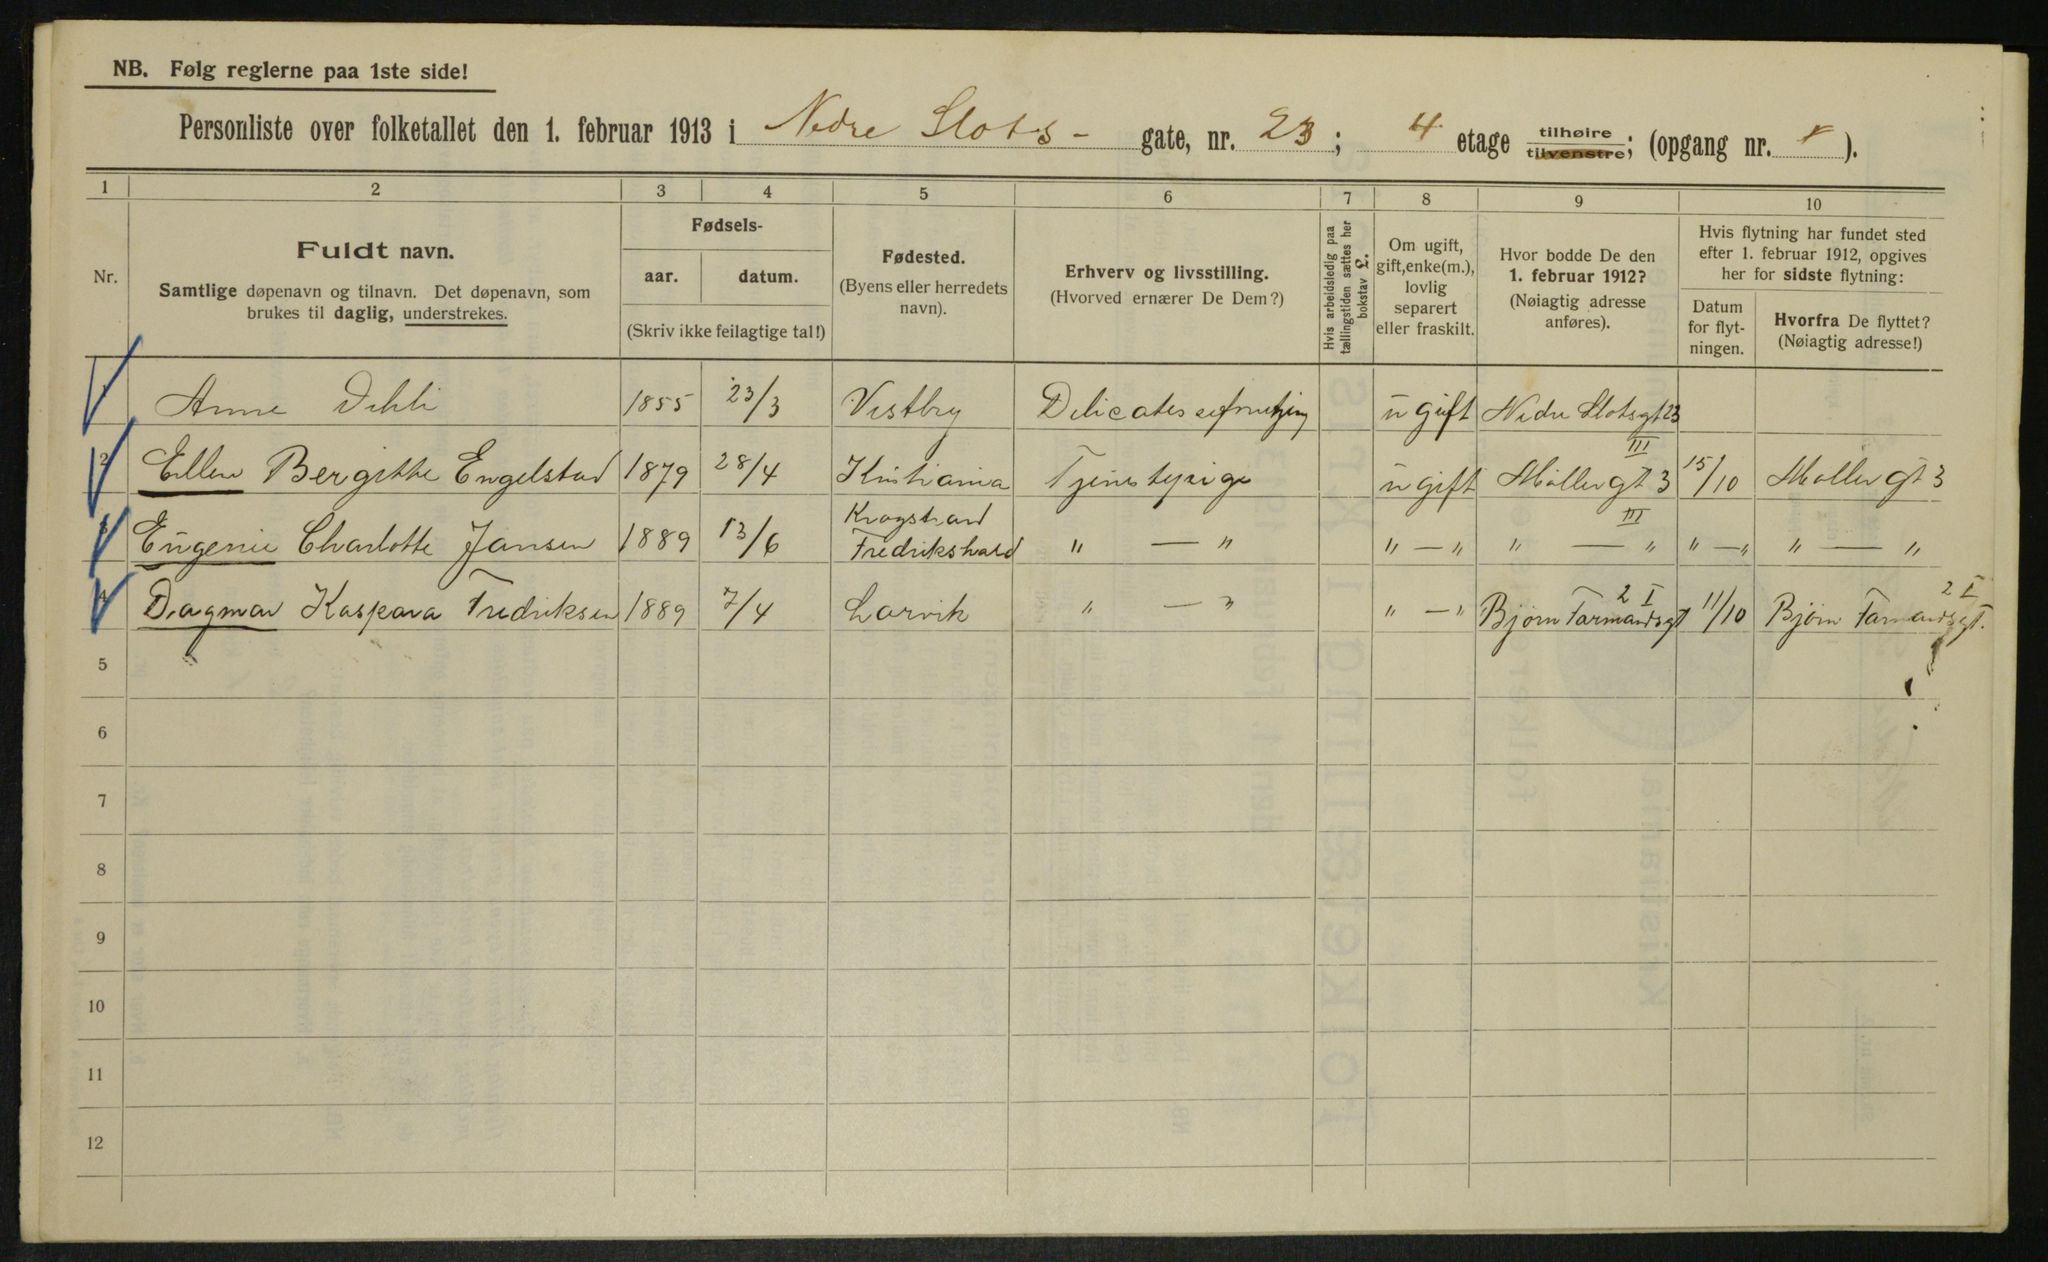 NB. Følg reglerne paa 1ste side!
Personliste over folketallet den 1. februar 1913 i Nedre Slots- gate, nr. 23; 4 etage tilhøire / tilvenstre; (opgang nr. ).
1 2 3 4 5 6 7 8 9 10
Nr.
Fuldt navn.
Samtlige døpenavn og tilnavn. Det døpenavn, som
brukes til daglig, understrekes.
Fødsels-
aar. datum.
(Skriv ikke feilagtige tal!)
Fødested.
(Byens eller herredets
navn).
Erhverv og livsstilling.
(Hvorved ernærer De Dem?)
Hvis arbeidsledig paa
tællingstiden sættes her
bokstav L.
Om ugift,
gift, enke(m.),
lovlig
separert
eller fraskilt.
Hvor bodde De den
1. februar 1912?
(Nøiagtig adresse
anføres).
Hvis flytning har fundet sted
efter 1. februar 1912, opgives
her for sidste flytning:
Datum
for flyt-
ningen.
Hvorfra De flyttet?
(Nøiagtig adresse!)
1 Anne Dehli 1855 23/3 Vestby ugift Nedre Slotsgt 23
2 Ellen Bergitte Engelstad 1879 28/4 Kristiania Tjenestepige ugift Møllergt 3 III 15/10 Møllergt 3
3 Eugenie Charlotte Jansen 1889 13/6 Fredrikshald " — " " — " " — " III " — " " — "
4 Dagmar Kaspara Fredriksen 1889 7/4 Larvik " — " " — " Bjørn Farmandsgt 2 I 11/10 Bjørn Farmandsgt. 2 I
5
6
7
8
9
10
11
12